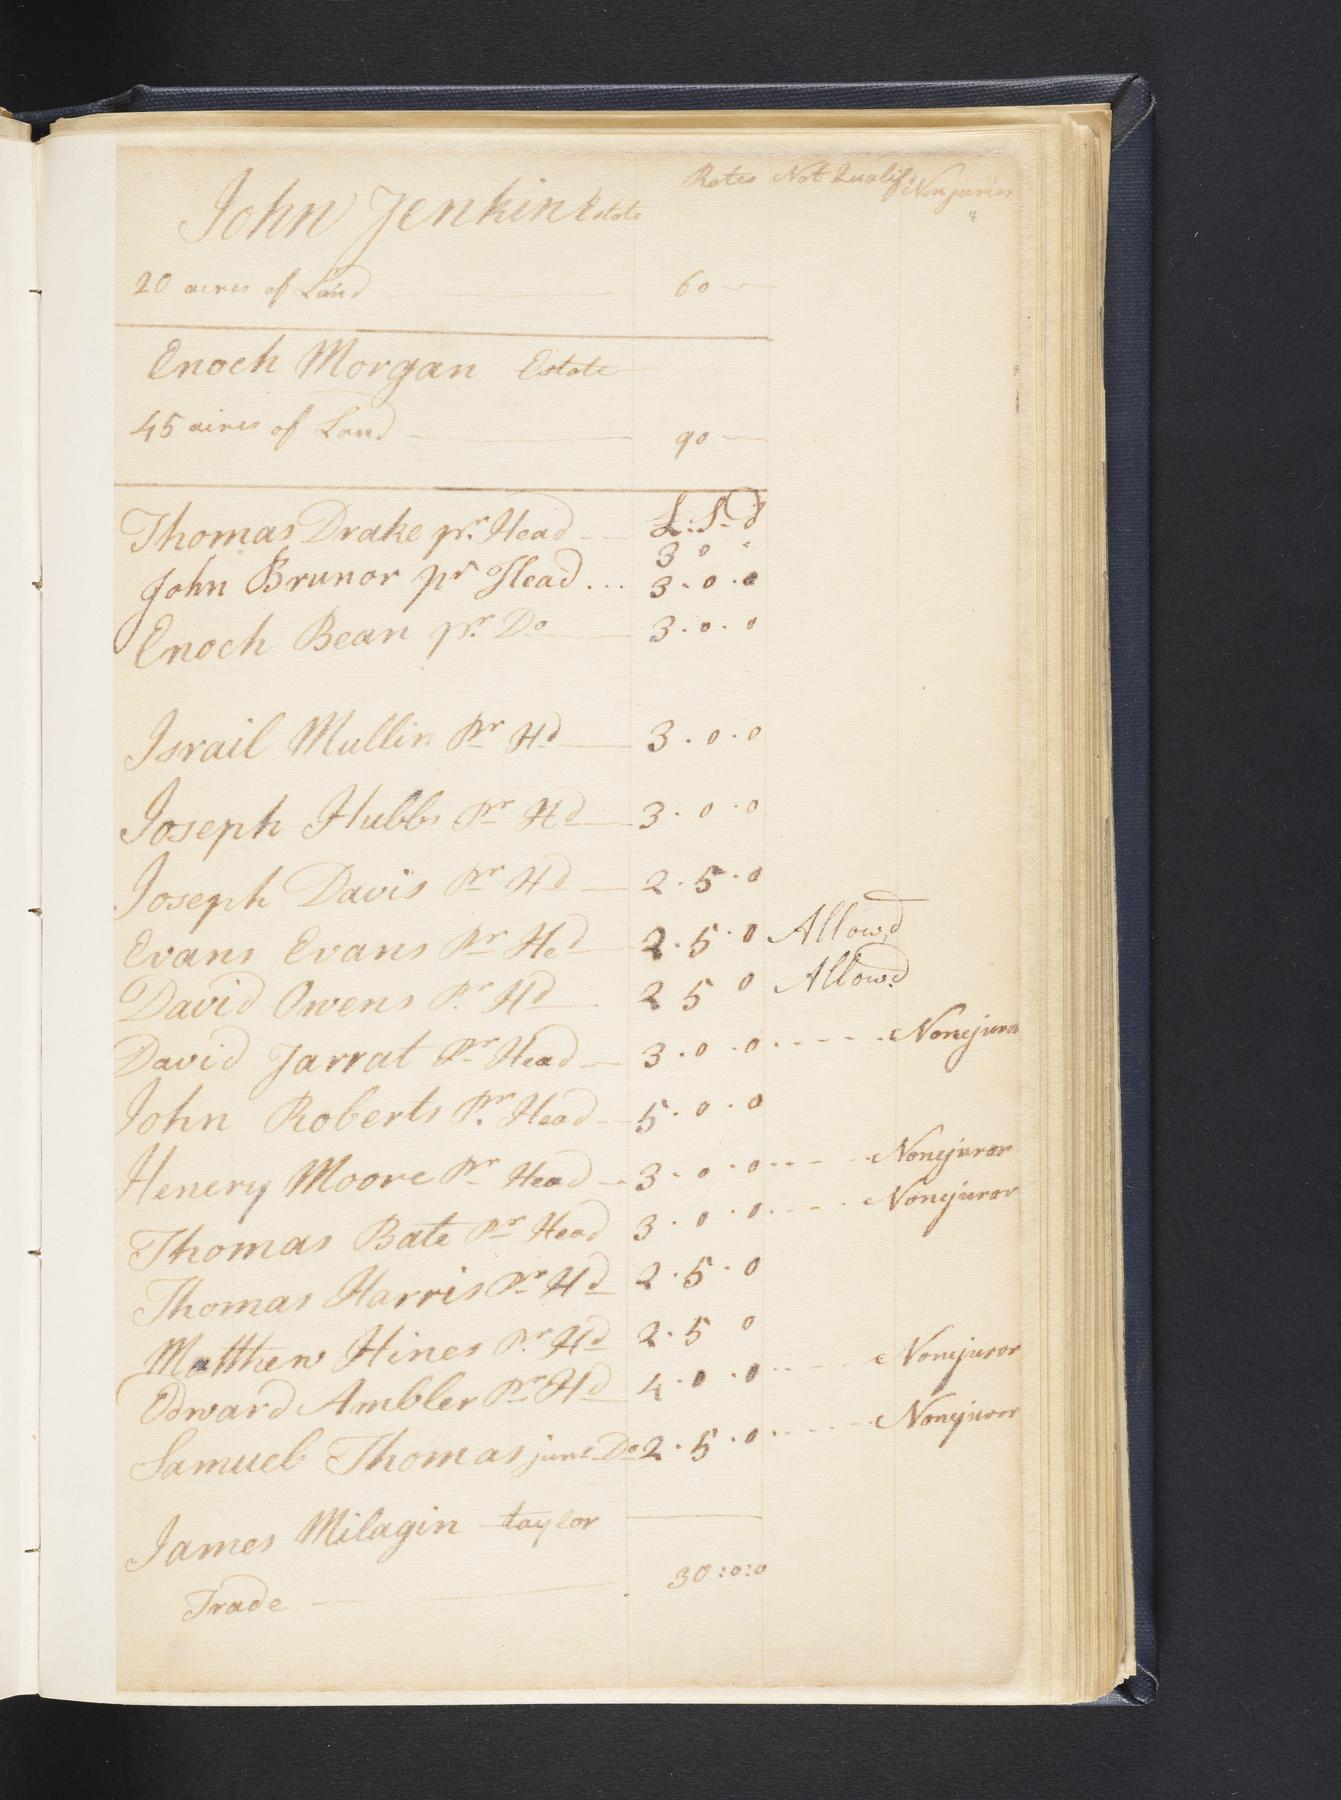 Rates Not Qualif. Nonjuries
8
John Jenkin Estate
20 acres of Land 60
Enoch Morgan Estate
45 acres of Land 90
£ : S - d
Thomas Drake pr. Head 3 0
John Brunor pr Head ... 3 . 0 . 0
Enoch Bean pr. Do 3 . 0 . 0
Israil Mullin Pr Hd 3 . 0 . 0
Joseph Hubbs Pr Hd 3 . 0 . 0
Joseph Davis Pr Hd 2 . 5 . 0
Evans Evans Pr Hed 2 . 5 . 0 Allow,d
David Owens Pr Hd 2 5 0 Allow,d
David Jarrat Pr Head 3 . 0 . 0 Nonejuror
John Roberts Pr. Head 5 . 0 . 0
Henery Moore Pr Head 3 . 0 . 0 Nonejuror
Thomas Bate Pr Head 3 . 0 . 0 Nonejuror
Thomas Harris Pr Hd 2 . 5 . 0
Matthew Hines Pr. Hd 2 . 5 0
Edward Ambler Pr Hd 4 . 0 . 0 Nonejuror
Samuel Thomas junr Do 2 . 5 . 0 Nonejuror
James Milagin taylor
Trade 30 : 0 : 0